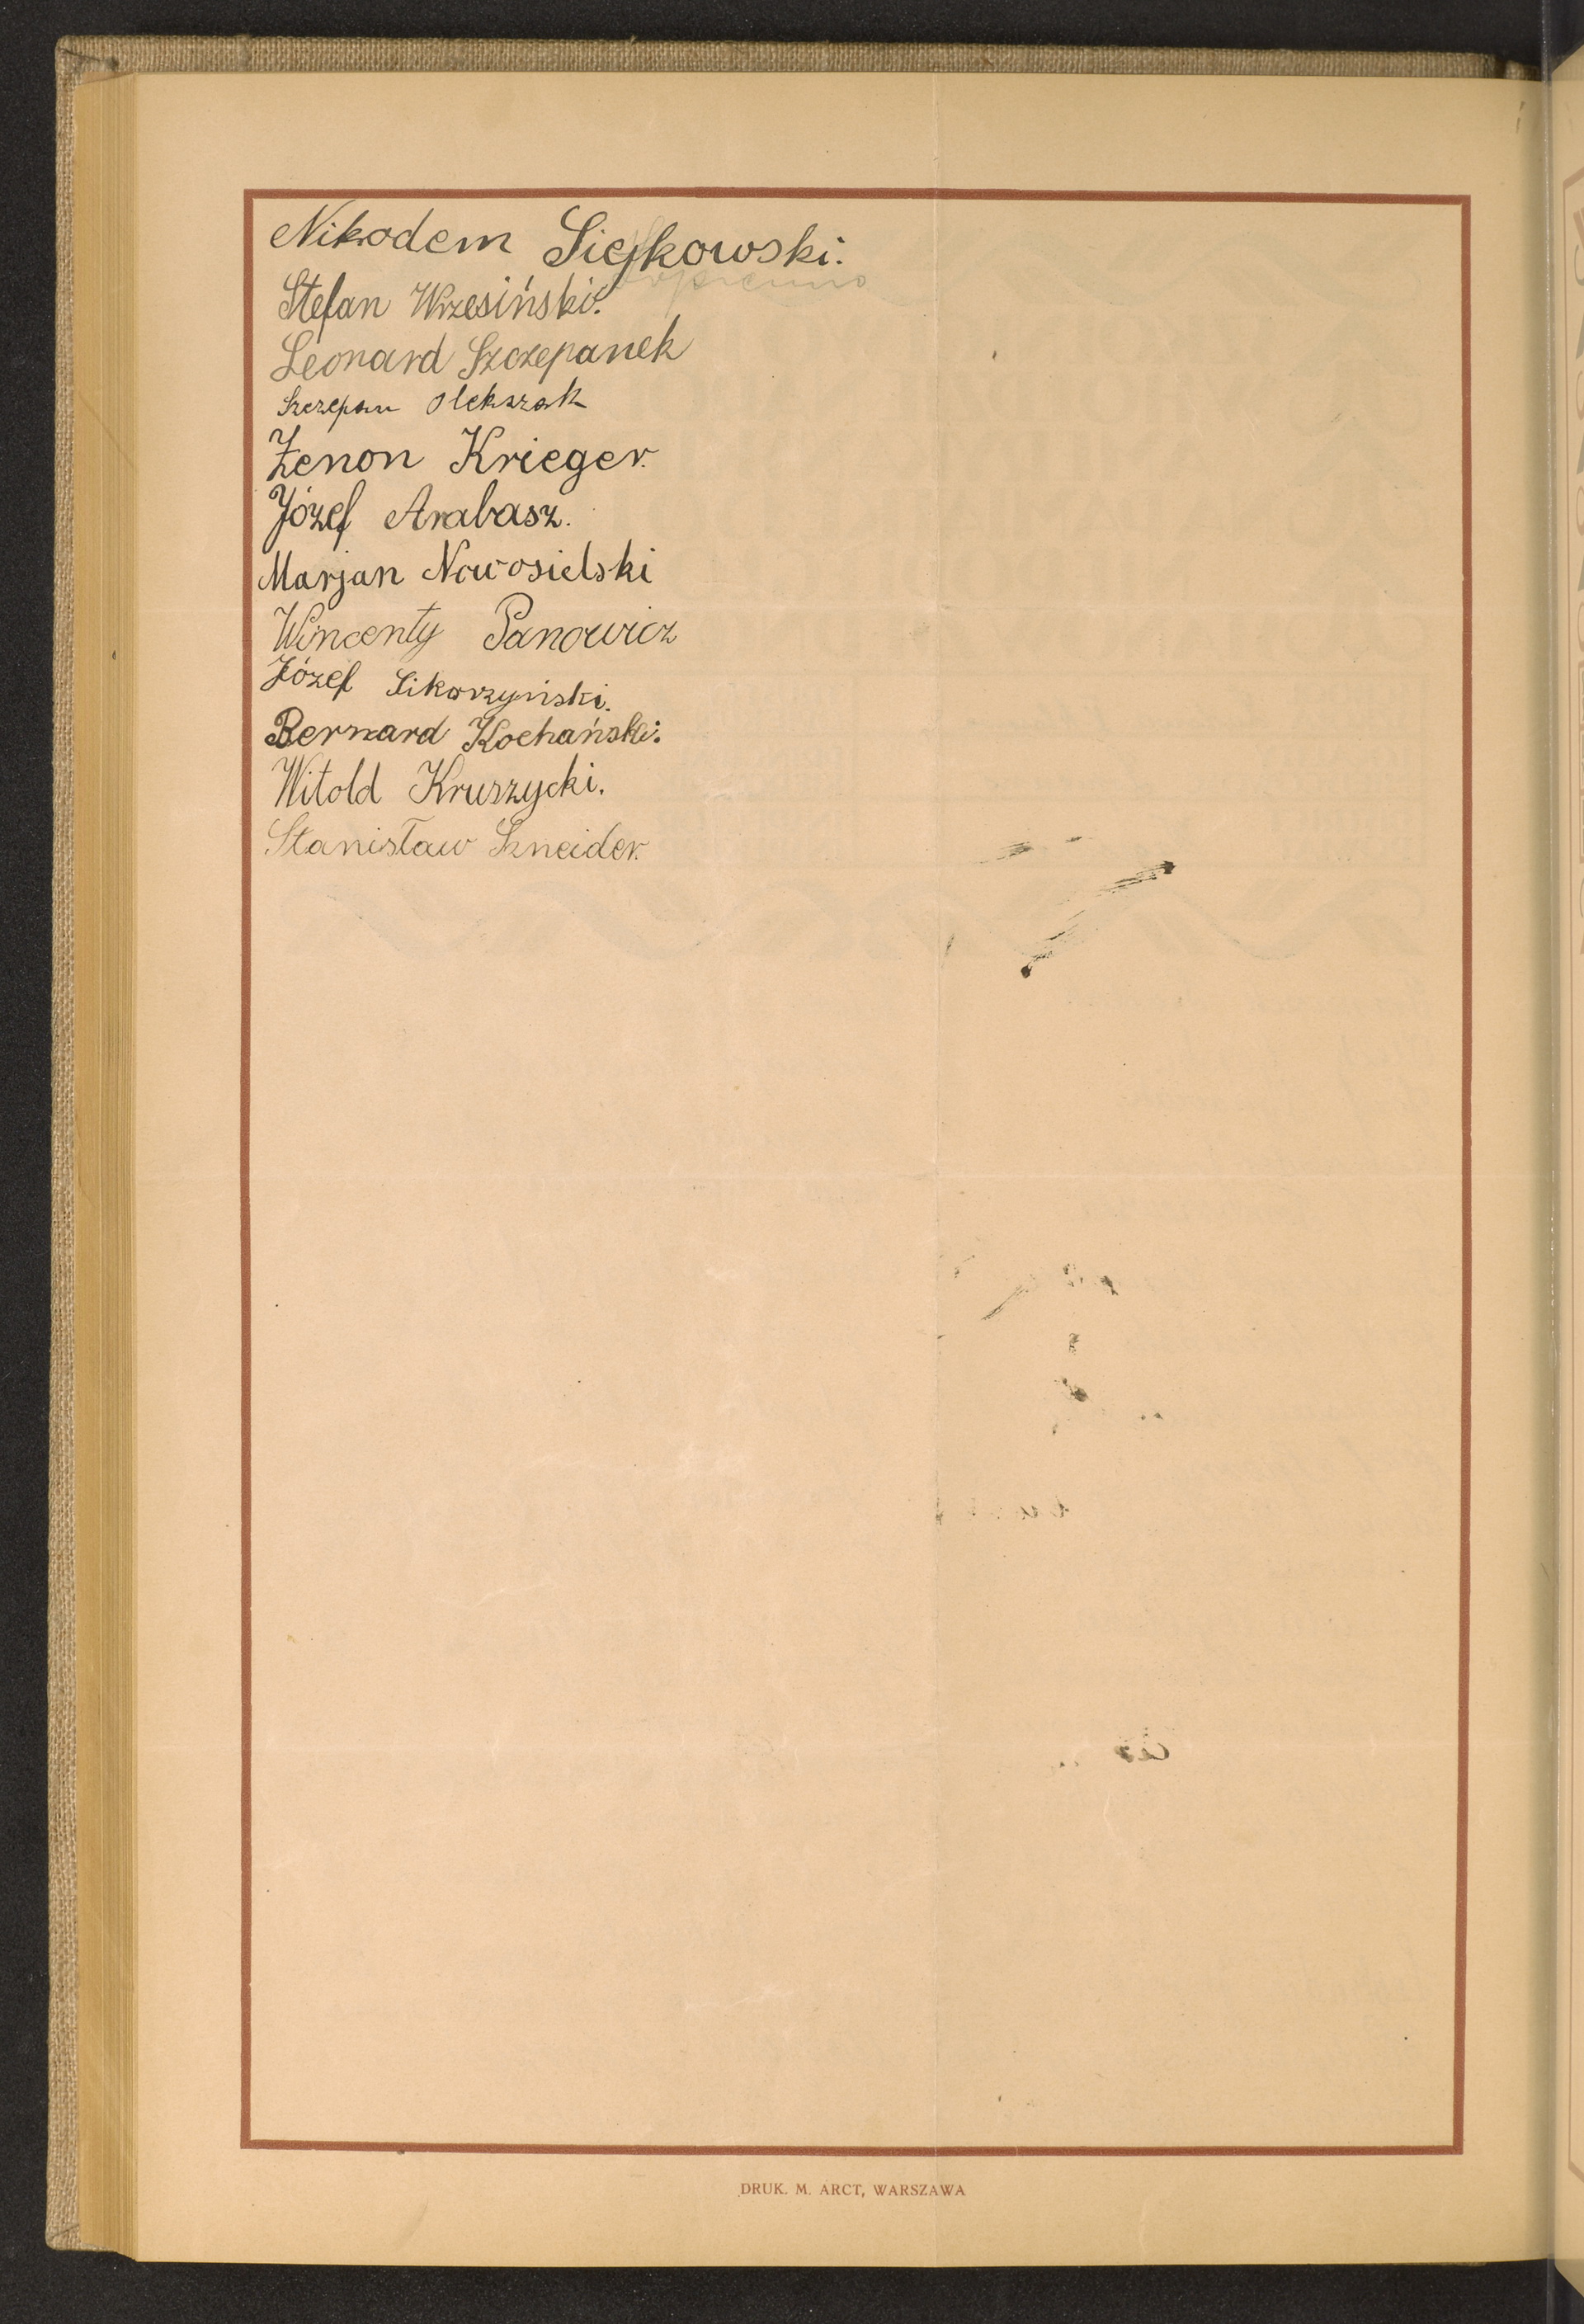 Nikodem Siejkowski.
Stefan Wrzesiński.
Leonard Szczepanek
Szczepan Olekszak
Zenon Krieger.
Józef Arabasz.
Marjan Nowosielski
Wincenty Panowicz
Józef Sikorzyński.
Bernard Kochański.
Witold Kruszycki.
Stanisław Szneider.
DRUK. M. ARCT, WARSZAWA